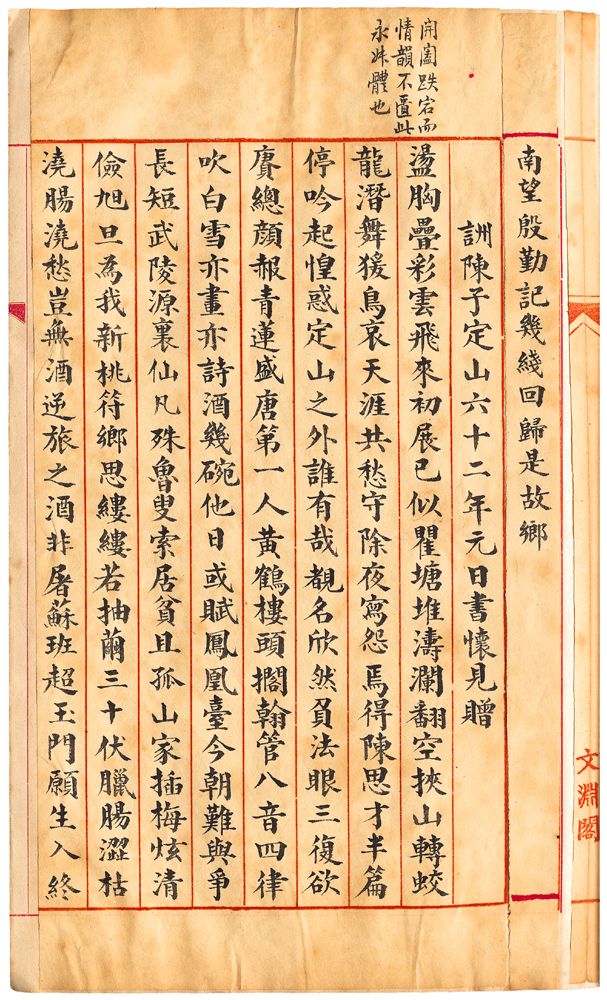 開闔跌宕而
情韻不匱此
永姊體也
南望殷勤記幾綫回歸是故鄉
詶陳子定山六十二年元日書懷見贈
盪胸疊彩雲飛來初展已似瞿塘堆濤瀾翻空挾山轉蛟
龍潛舞猨鳥哀天涯共愁守除夜寫怨焉得陳思才半篇
停吟起惶惑定山之外誰有哉覩名欣然負法眼三復欲
賡總顏赧青蓮盛唐第一人黃鶴樓頭擱翰管八音四律
吹白雪亦畫亦詩酒幾碗他日或賦鳳凰臺今朝難與爭
長短武陵源裏仙凡殊魯叟索居貧且孤山家插梅炫清
儉旭旦為我新桃符鄉思縷縷若抽繭三十伏臘腸澀枯
澆腸澆愁豈無酒逆旅之酒非屠蘇班超玉門願生入終
文淵閣